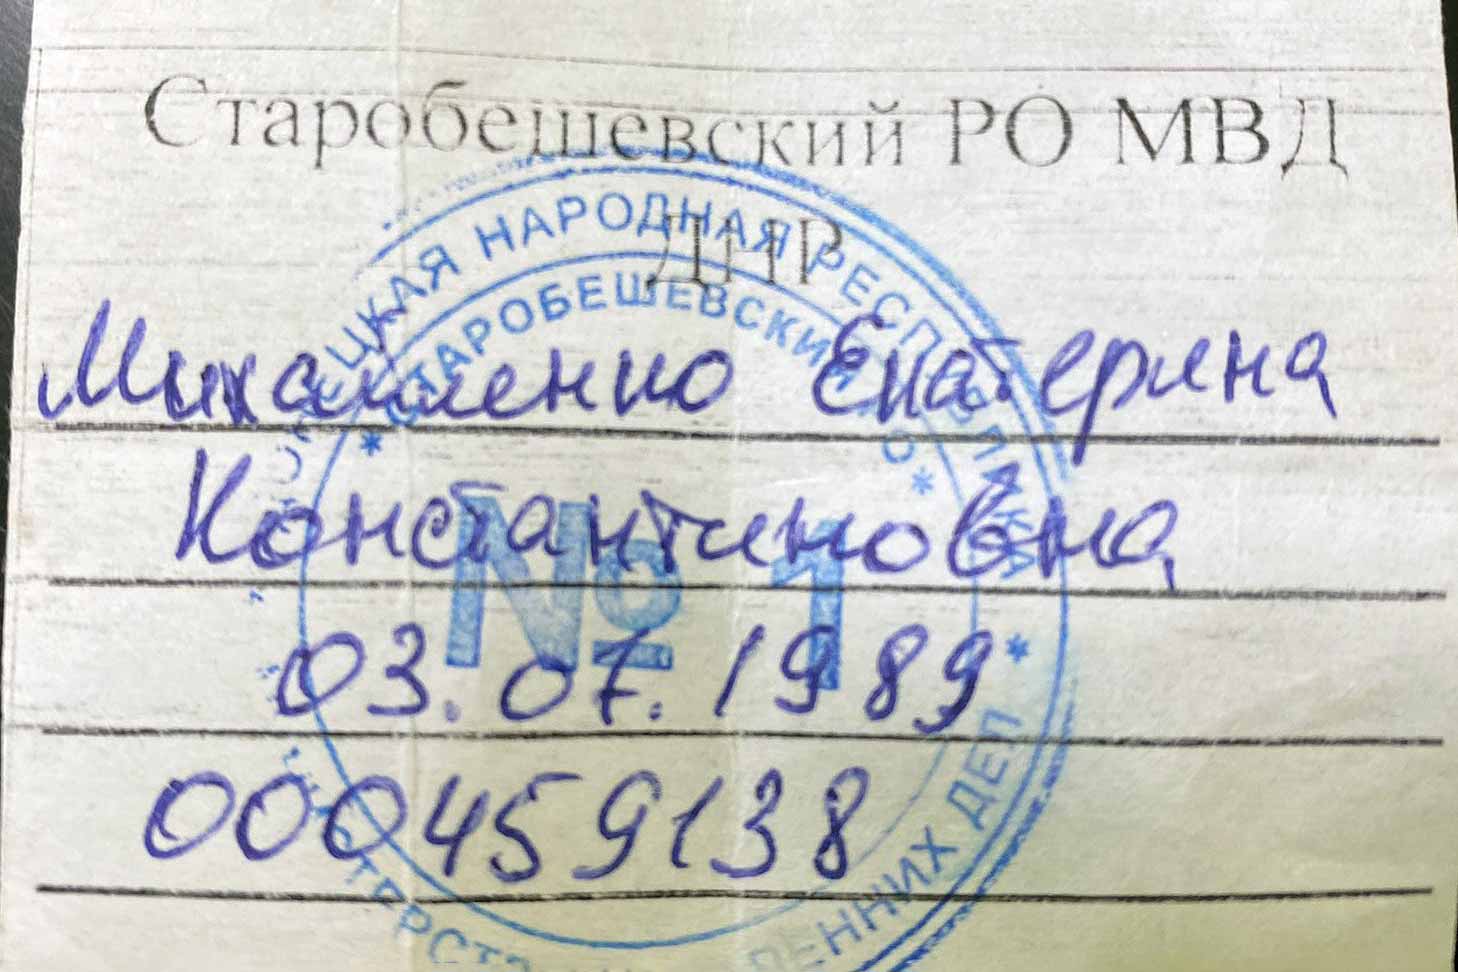 Старобешевский РО МВД
ДНР
Михайленко Екатерина
Константиновна
03.07.1989
000459138
ДОНЕЦКАЯ НАРОДНАЯ РЕСПУБЛИКА
* СТАРОБЕШЕВСКИЙ РО *
№ 1